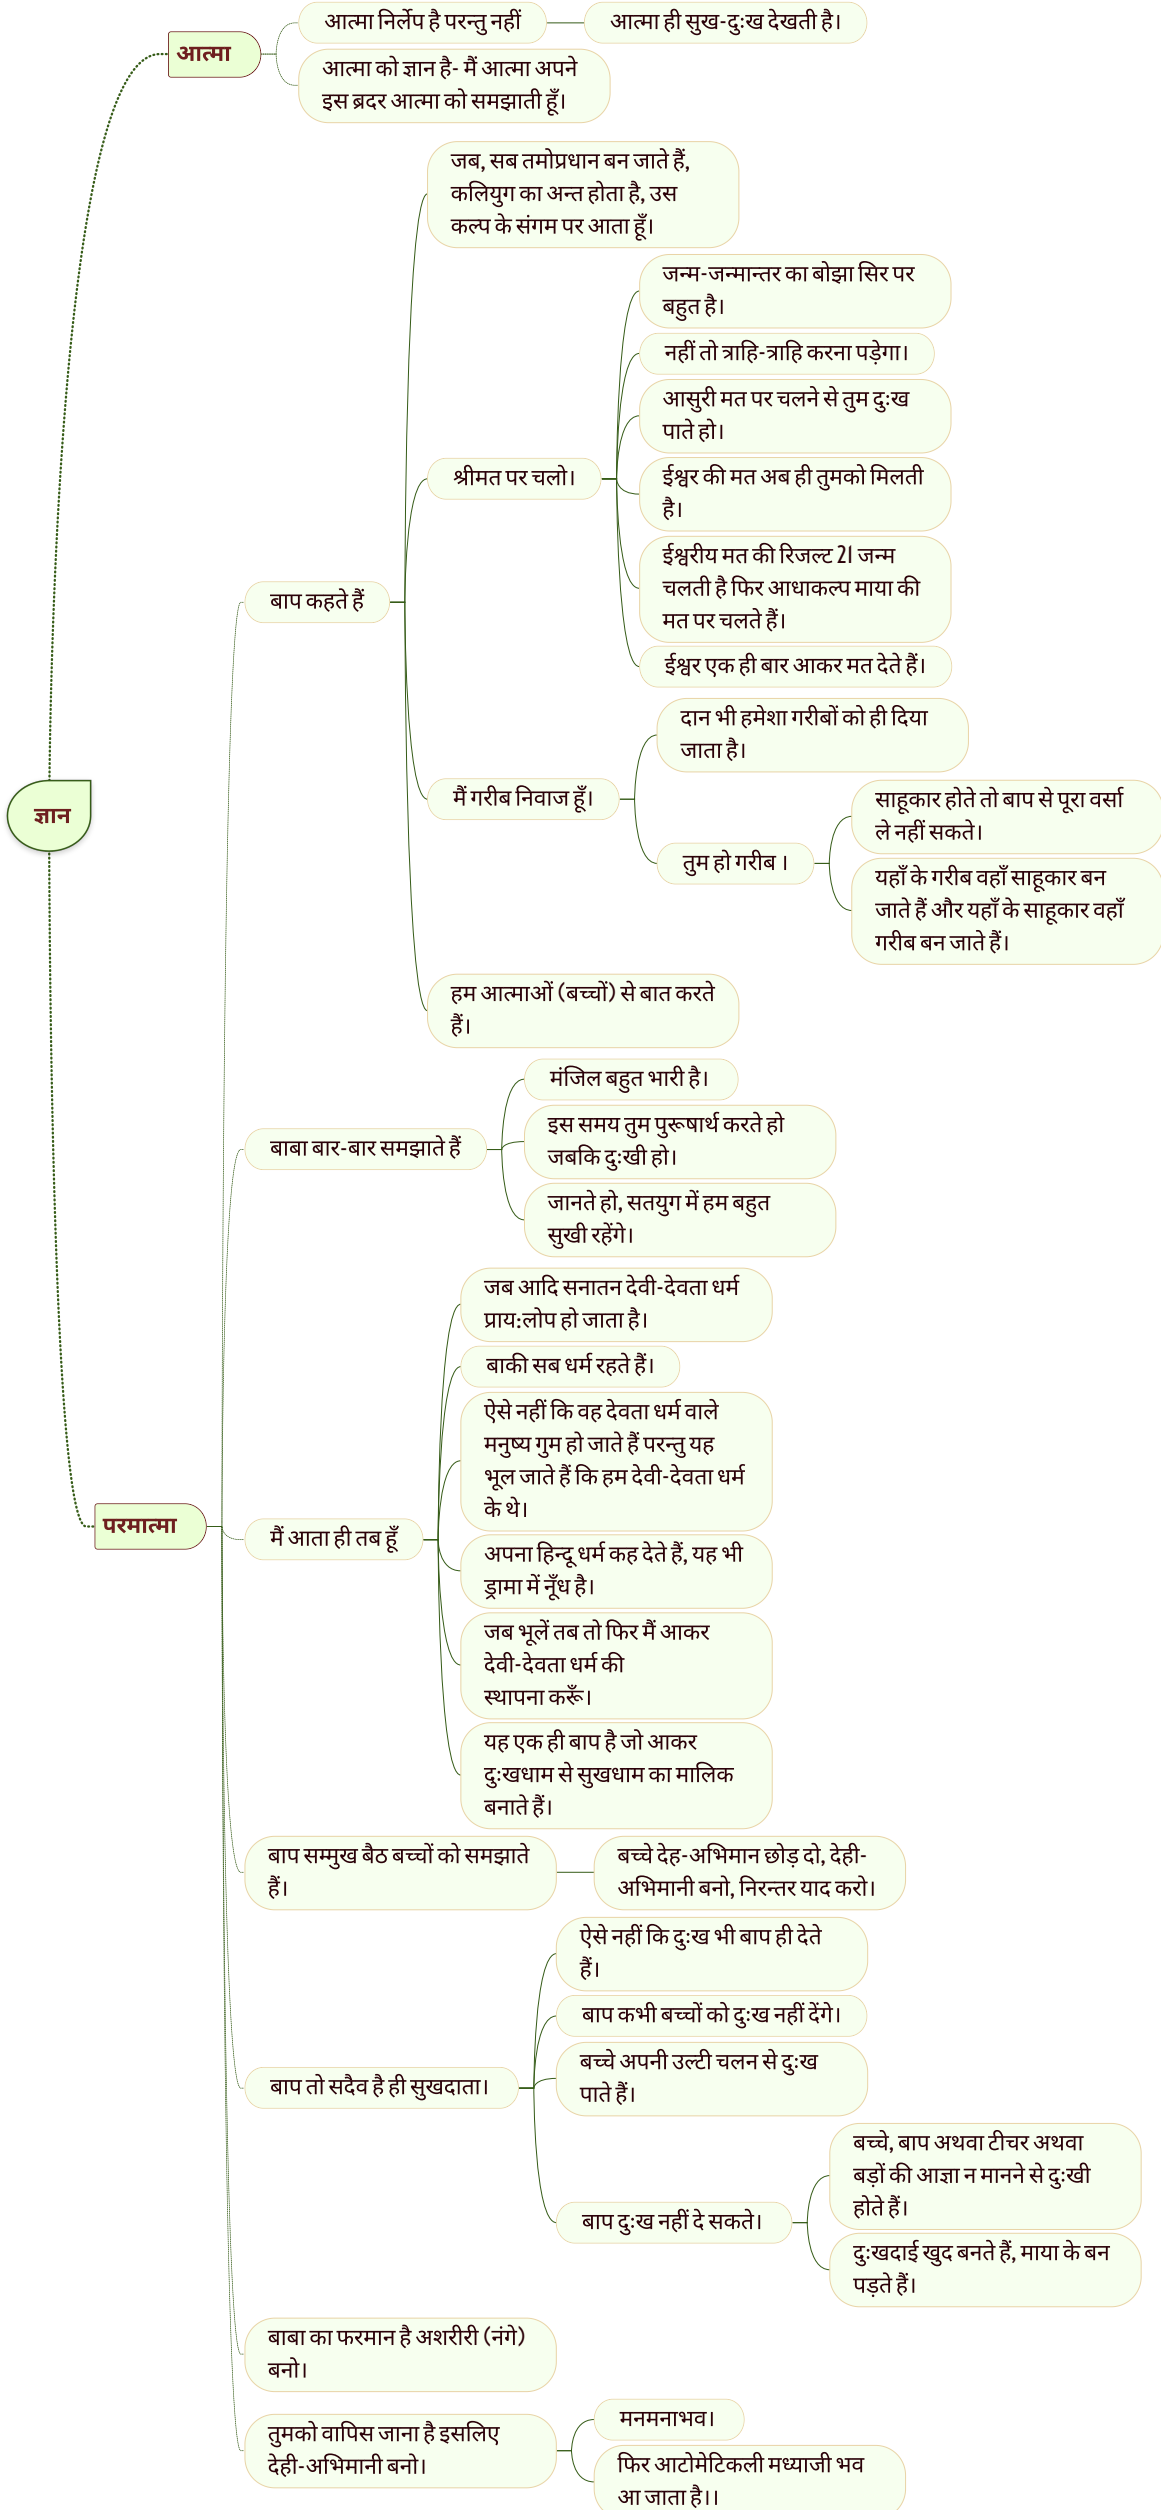 आत्मा
आत्मा निर्लेप है परन्तु नहीं
आत्मा ही सुख-दुःख देखती है।
आत्मा को ज्ञान है- मैं आत्मा अपने
इस ब्रदर आत्मा को समझाती हूँ।
जब, सब तमोप्रधान बन जाते हैं,
कलियुग का अन्त होता है, उस
कल्प के संगम पर आता हूँ।
जन्म-जन्मान्तर का बोझा सिर पर
बहुत है।
नहीं तो त्राहि-त्राहि करना पड़ेगा।
आसुरी मत पर चलने से तुम दुःख
पाते हो।
श्रीमत पर चलो।
ईश्वर की मत अब ही तुमको मिलती
है।
ईश्वरीय मत की रिजल्ट 21 जन्म
चलती है फिर आधाकल्प माया की
मत पर चलते हैं।
बाप कहते हैं
ईश्वर एक ही बार आकर मत देते हैं।
दान भी हमेशा गरीबों को ही दिया
जाता है।
मैं गरीब निवाज हूँ।
साहूकार होते तो बाप से पूरा वर्सा
ले नहीं सकते।
ज्ञान
तुम हो गरीब ।
यहाँ के गरीब वहाँ साहूकार बन
जाते हैं और यहाँ के साहूकार वहाँ
गरीब बन जाते हैं।
हम आत्माओं (बच्चों) से बात करते
हैं।
मंजिल बहुत भारी है।
बाबा बार-बार समझाते हैं
इस समय तुम पुरूषार्थ करते हो
जबकि दुःखी हो।
जानते हो, सतयुग में हम बहुत
सुखी रहेंगे।
जब आदि सनातन देवी-देवता धर्म
प्राय:लोप हो जाता है।
बाकी सब धर्म रहते हैं।
ऐसे नहीं कि वह देवता धर्म वाले
मनुष्य गुम हो जाते हैं परन्तु यह
भूल जाते हैं कि हम देवी-देवता धर्म
के थे।
परमात्मा
मैं आता ही तब हूँ
अपना हिन्दू धर्म कह देते हैं, यह भी
ड्रामा में नूँध है।
जब भूलें तब तो फिर मैं आकर
देवी-देवता धर्म की
स्थापना करूँ।
यह एक ही बाप है जो आकर
दुःखधाम से सुखधाम का मालिक
बनाते हैं।
बाप सम्मुख बैठ बच्चों को समझाते
हैं।
बच्चे देह-अभिमान छोड़ दो, देही-
अभिमानी बनो, निरन्तर याद करो।
ऐसे नहीं कि दुःख भी बाप ही देते
हैं।
बाप कभी बच्चों को दुःख नहीं देंगे।
बच्चे अपनी उल्टी चलन से दुःख
पाते हैं।
बाप तो सदैव है ही सुखदाता।
बच्चे, बाप अथवा टीचर अथवा
बड़ों की आज्ञा न मानने से दुःखी
होते हैं।
बाप दुःख नहीं दे सकते।
दुःखदाई खुद बनते हैं, माया के बन
पड़ते हैं।
बाबा का फरमान है अशरीरी (नंगे)
बनो।
तुमको वापिस जाना है इसलिए
देही-अभिमानी बनो।
मनमनाभव।
फिर आटोमेटिकली मध्याजी भव
आ जाता है।।